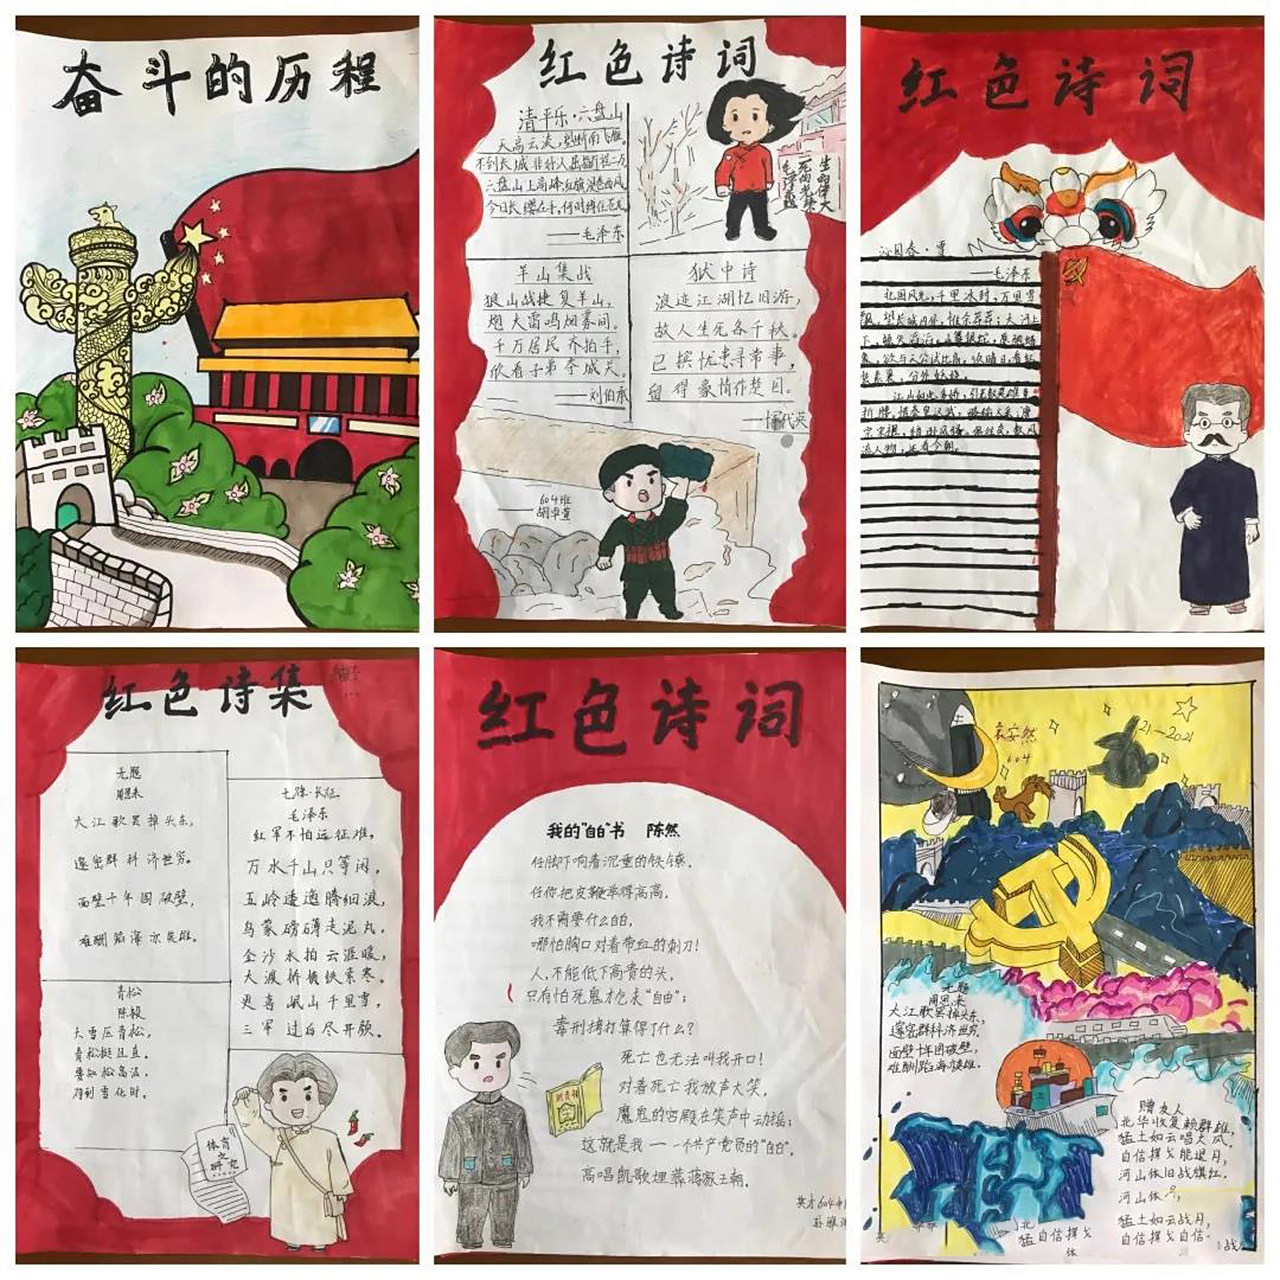 奋斗的历程
红色诗词
清平乐·六盘山
天高云淡,望断南飞雁。
不到长城非好汉,屈指行程二万
六盘山上高峰,红旗漫卷西风
今日长缨在手,何时缚住苍龙
——毛泽东
生的伟大
死的光荣
毛泽东题
羊山集战
狼山战捷复羊山,
炮火雷鸣烟雾间。
千万居民齐拍手,
欣看子弟夺城关。
——刘伯承
狱中诗
浪迹江湖忆旧游,
故人生死各千秋。
已摈忧患寻常事,
留得豪情作楚囚。
——恽代英
604班
红色诗词
沁园春·雪
——毛泽东
北国风光,千里冰封,万里雪
飘,望长城内外,惟余莽莽;大河上
下,顿失滔滔。
象,欲与天公试比高。
分外妖娆。
江山如此多娇,引无数英雄竞
折腰。惜秦皇汉武,略输文采;唐
宗宋祖,稍逊风骚。
流人物,还看今朝。
红色诗集
无题
周恩来
大江歌罢掉头东,
邃密群科济世穷。
面壁十年图破壁,
难酬蹈海亦英雄。
青松
陈毅
大雪压青松,
青松挺且直。
要知松高洁,
待到雪化时。
七律·长征
毛泽东
红军不怕远征难,
万水千山只等闲,
五岭逶迤腾细浪,
乌蒙磅礴走泥丸,
金沙水拍云涯暖,
大渡桥横铁索寒。
更喜岷山千里雪,
三军过后尽开颜。
体育
之
研究
红色诗词
我的"自白"书 陈然
任脚下响着沉重的铁镣,
任你把皮鞭举得高高,
我不需要什么自白,
哪怕胸口对着带血的刺刀!
人,不能低下高贵的头,
只有怕死鬼才乞求"自由";
毒刑拷打算得了什么?
死亡也无法叫我开口!
对着死亡我放声大笑,
魔鬼的宫殿在笑声中动摇;
这就是我——一个共产党员的"自白",
高唱凯歌埋葬蒋家王朝。
新青年
英才604中队
袁安然
604
21.—2021
无题
周恩来
大江歌罢掉头东,
邃密群科济世穷
面壁十年图破壁,
难酬蹈海亦英雄。
赠友人
北华收复赖群雄,
猛士如云唱大风。
自信挥戈能退日,
河山依旧战旗红。
河山依
猛士如云战月,
自信挥戈自信。
北
猛 自信挥戈
依